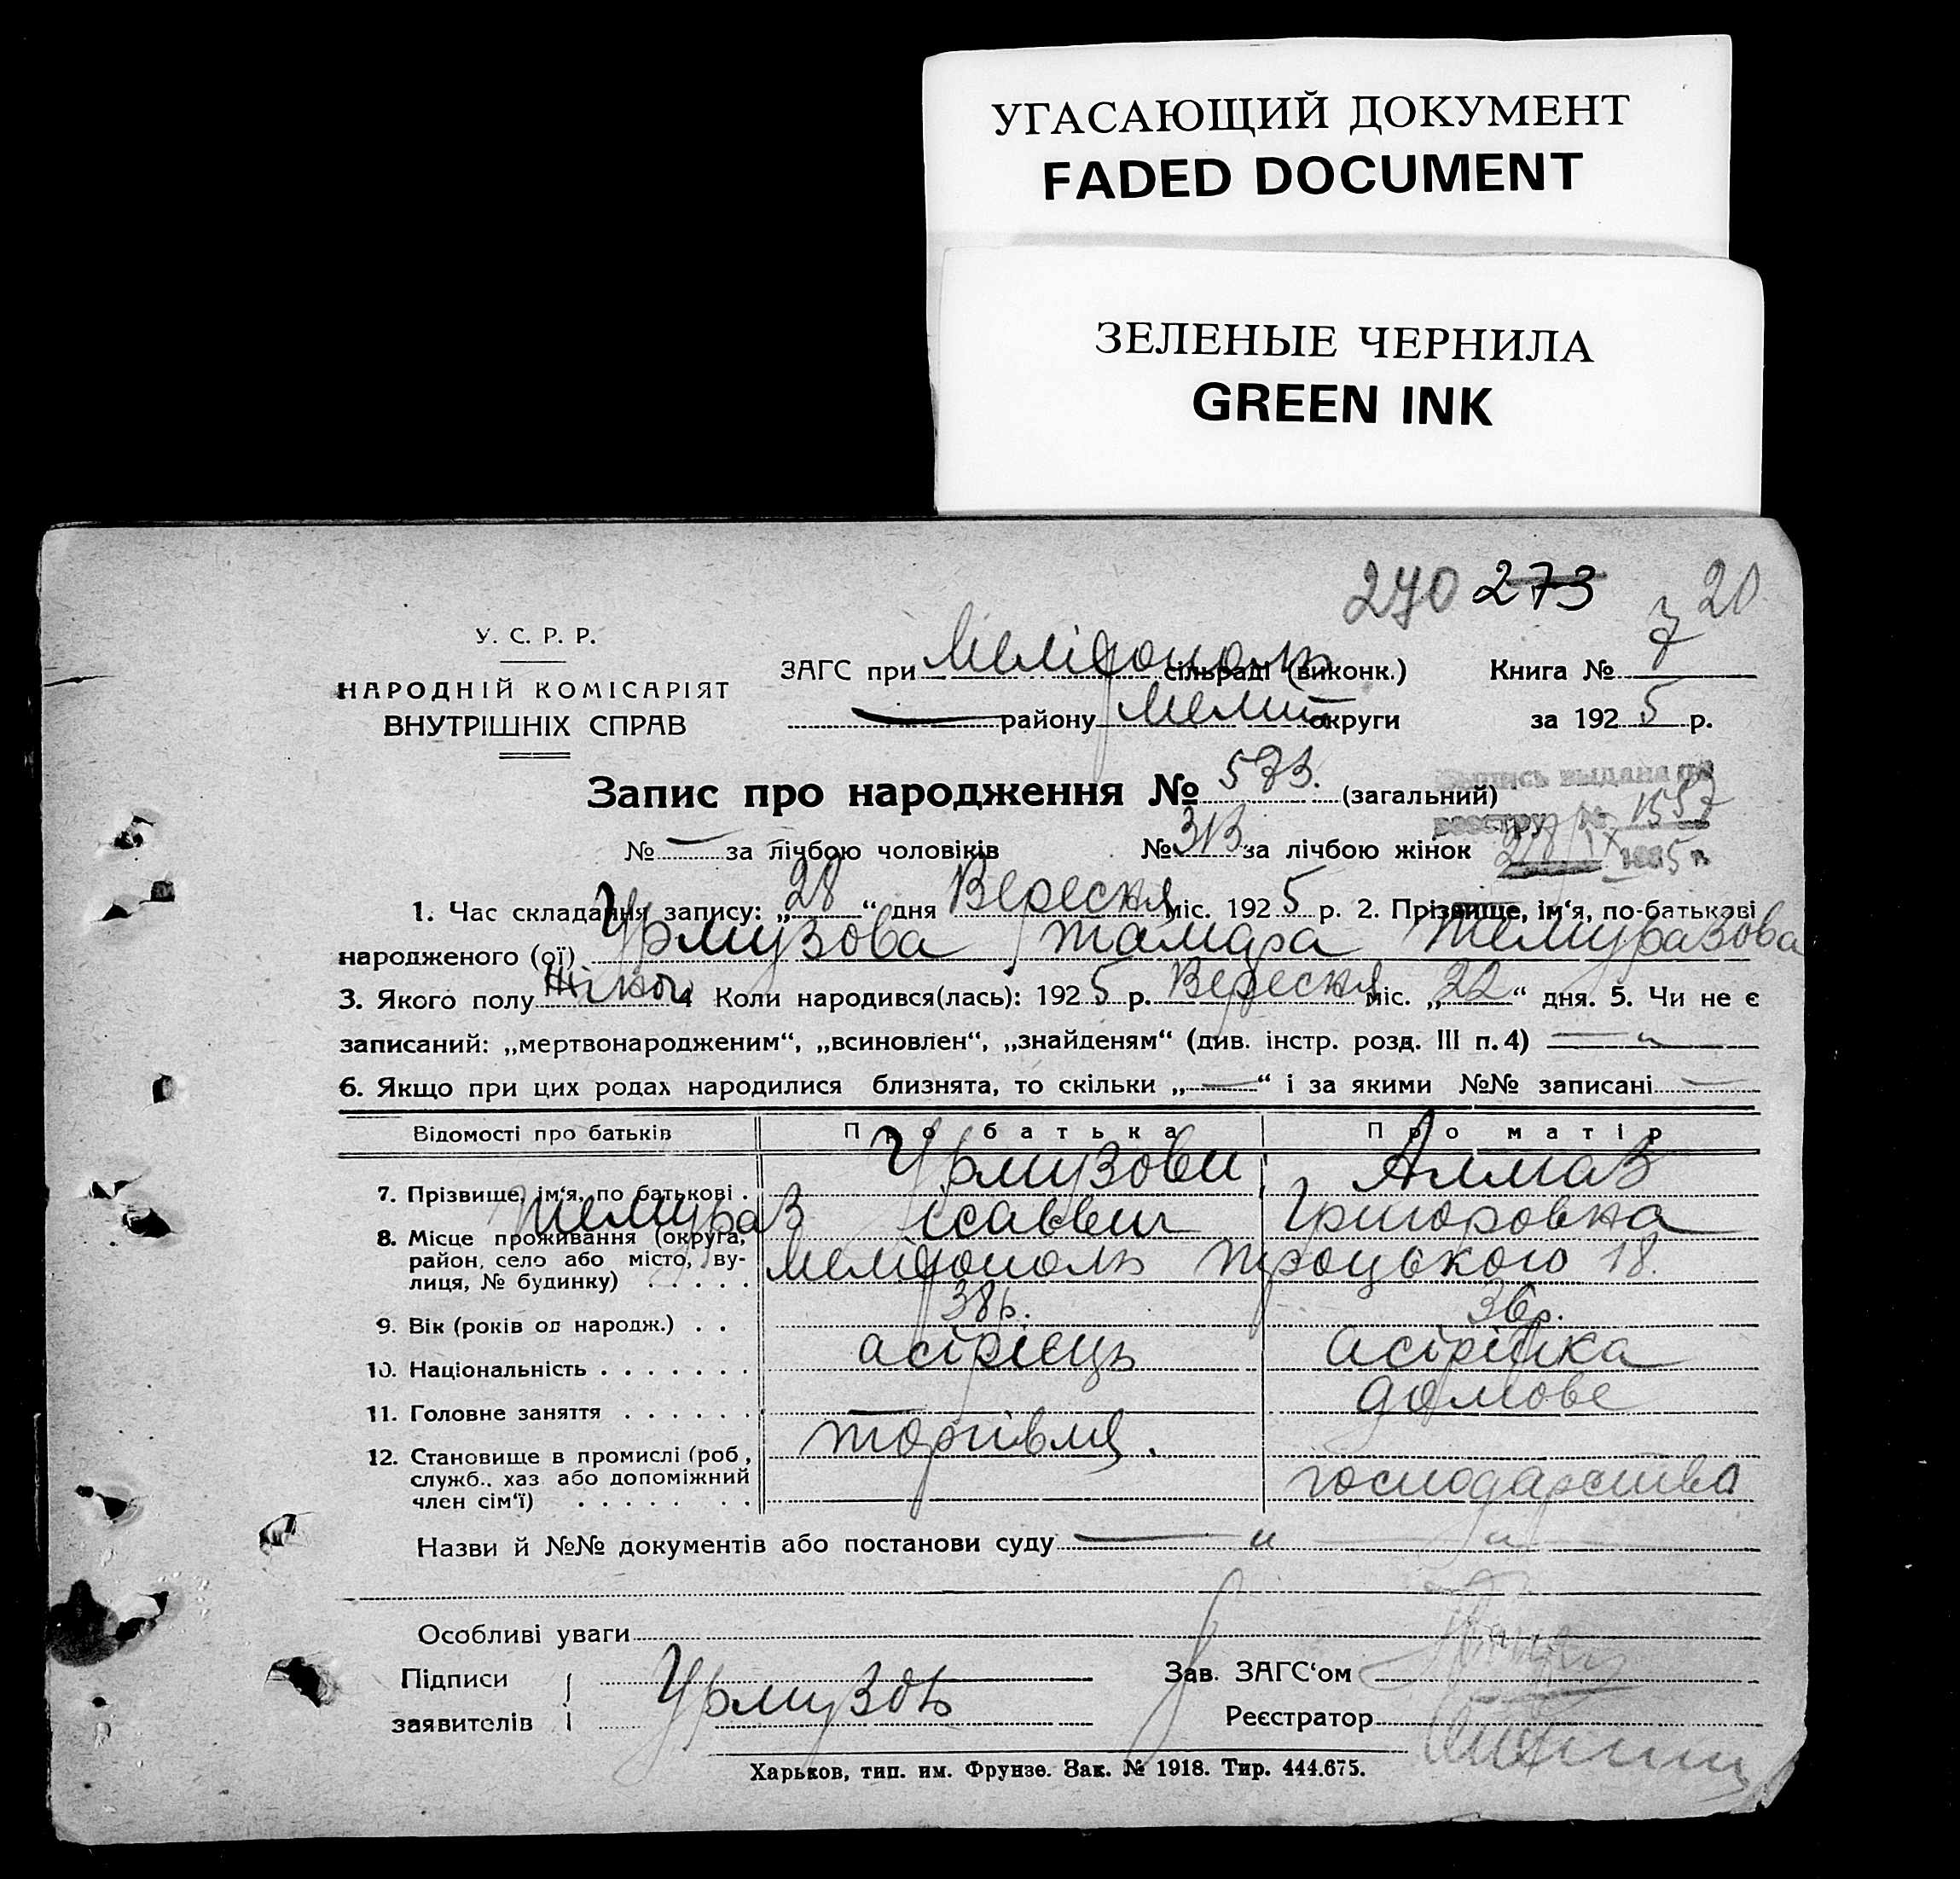 УГАСАЮЩИЙ ДОКУМЕНТ
FADED DOCUMENT
ЗЕЛЕНЫЕ ЧЕРНИЛА
GREEN INK
270 273 20
У. С. Р. Р.
НАРОДНІЙ КОМІСАРІЯТ
ВНУТРІШНІХ СПРАВ
ЗАГС при Мелідополь сільраді (виконк.) Книга № 7
— району Меліт округи за 1925 р.
Запис про народження № 573. (загальний)
Выпись выдана по
реестру № 1557
№ — за лічбою чоловіків № 313 за лічбою жінок
1. Час складання запису: „28“ дня Вересня міс. 1925 р. 2. Прізвище, ім‘я, по-батькові
народженого (ої) Урмузова Тамара Темуразова
3. Якого полу жіноч 4 Коли народився(лась): 1925 р. Вересня міс. „22“ дня. 5. Чи не є
записаний: „мертвонародженим“, „всиновлен“, „знайденям“ (див. інстр. розд. III п. 4) — „ —
6. Якщо при цих родах народилися близнята, то скільки „—“ і за якими №№ записані —
Відомості про батьків Про батька Про матір
7. Прізвище, ім‘я, по батькові . Урмузови Алмаз
Темураз Ісаввич Григоровна
8. Місце проживання (округа,
район, село або місто, ву-
лиця, № будинку) . . . . . Мелідополь Троцького 18.
9. Вік (років од народж.) . . 38 р. 36 р.
10. Національність . . . . . . . асірієць асірійка
11. Головне заняття . . . . . . — домове
12. Становище в промислі (роб,
служб., хаз або допоміжний
член сім‘ї) . . . . . . . торгівля. господарство
Назви й №№ документів або постанови суду — „ — „ —
Особливі уваги
Підписи
заявителів Урмузов
Зав. ЗАГС‘ом
Реєстратор
Харьков, тип. им. Фрунзе. Зак. № 1918. Тир. 444.675.